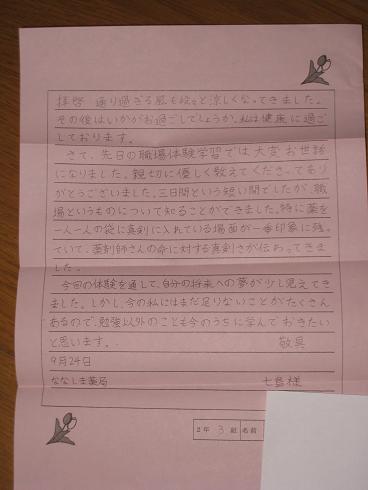 拝啓 通り過ぎる風も段々と涼しくなってきました。
その後はいかがお過ごしでしょうか。私は健康に過ご
しております。
さて、先日の職場体験学習では大変お世話
になりました。親切に優しく教えてくださってあり
がとうございました。三日間という短い間でしたが、職
場というものについて知ることができました。特に薬を
一人一人の袋に真剣に入れている場面が一番印象に残っ
ていて、薬剤師さんの命に対する真剣さが伝わってきま
した。
今回の体験を通して、自分の将来への夢が少し見えてき
ました。しかし、今の私にはまだ足りないことがたくさん
あるので、勉強以外のことも今のうちに学んでおきたい
と思います。 敬具
9月24日
ななしま薬局 七島様
2年 3 組 名前